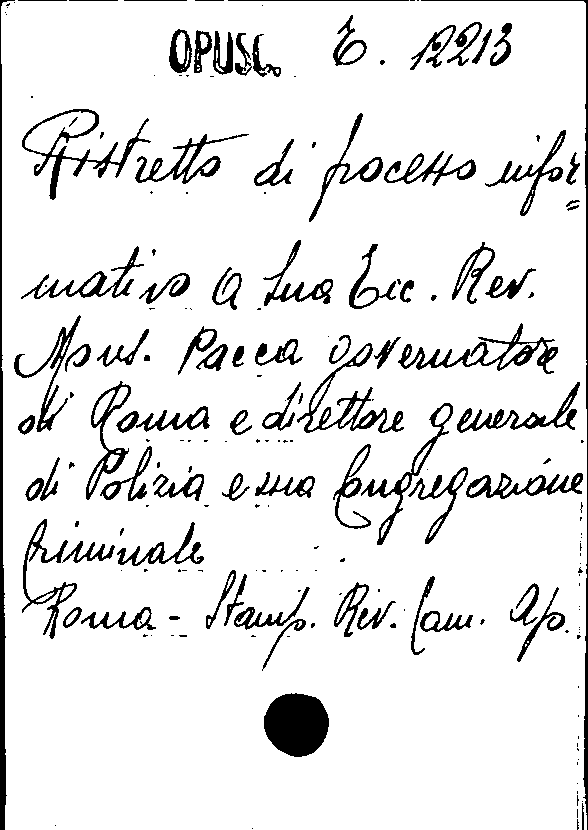 OPUSC. E. 12213
Ristretto di processo infor=
mativo a Sua Ecc. Rev.
Mons. Pacca governatore
di Roma e direttore generale
di Polizia e sua Congregazione
Criminale
Roma - Stamp. Rev. Cam. Ap.